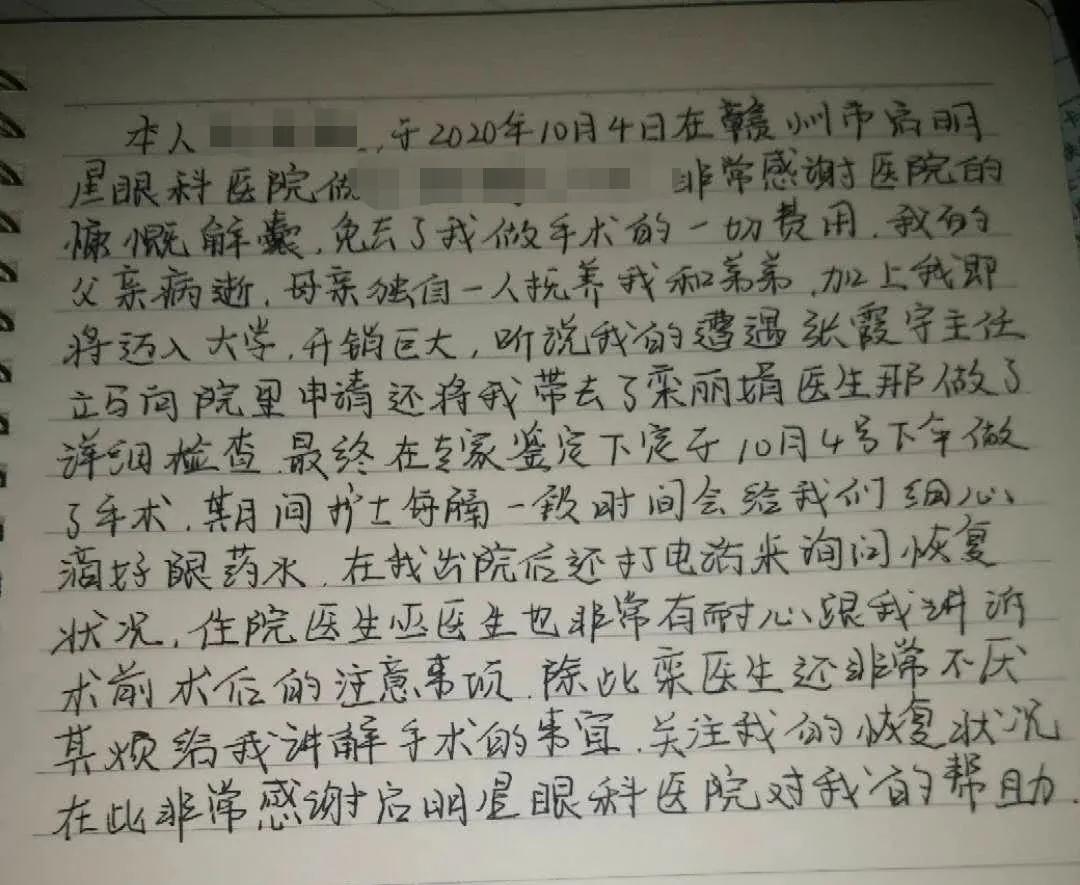 本人,于2020年10月4日在赣州市启明
星眼科医院做 非常感谢医院的
慷慨解囊,免去了我做手术的一切费用,我的
父亲病逝,母亲独自一人抚养我和弟弟,加上我即
将迈入大学,开销巨大,听说我的遭遇张霞宇主任
立马向院里申请还将我带去了栾丽娟医生那做了
详细检查,最终在专家鉴定下定于10月4号下午做
了手术,期间护士每隔一段时间会给我们细心
滴好眼药水,在我出院后还打电话来询问恢复
状况,住院医生巫医生也非常有耐心跟我讲诉
术前术后的注意事项,除此栾医生还非常不厌
其烦给我讲解手术的事宜,关注我的恢复状况
在此非常感谢启明星眼科医院对我的帮助.